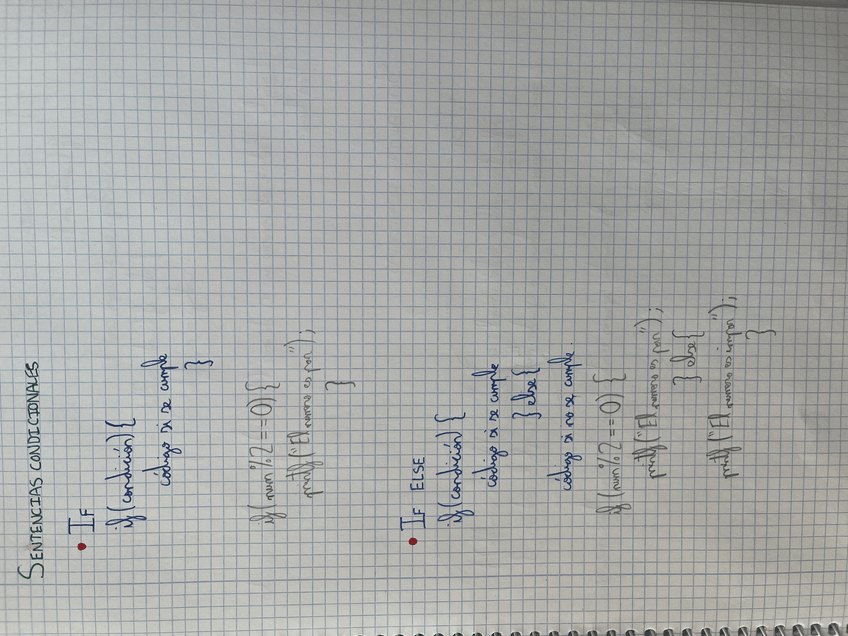 SENTENCIAS CONDICIONALES
• IF
if (condición) {
código si se cumple
}
if (num%2==0) {
printf("El numero es par");
}
• IF ELSE
if (condición) {
código si se cumple
} else {
código si no se cumple
if (num%2==0) {
printf("El numero es par");
} else {
printf("El numero es impar");
}